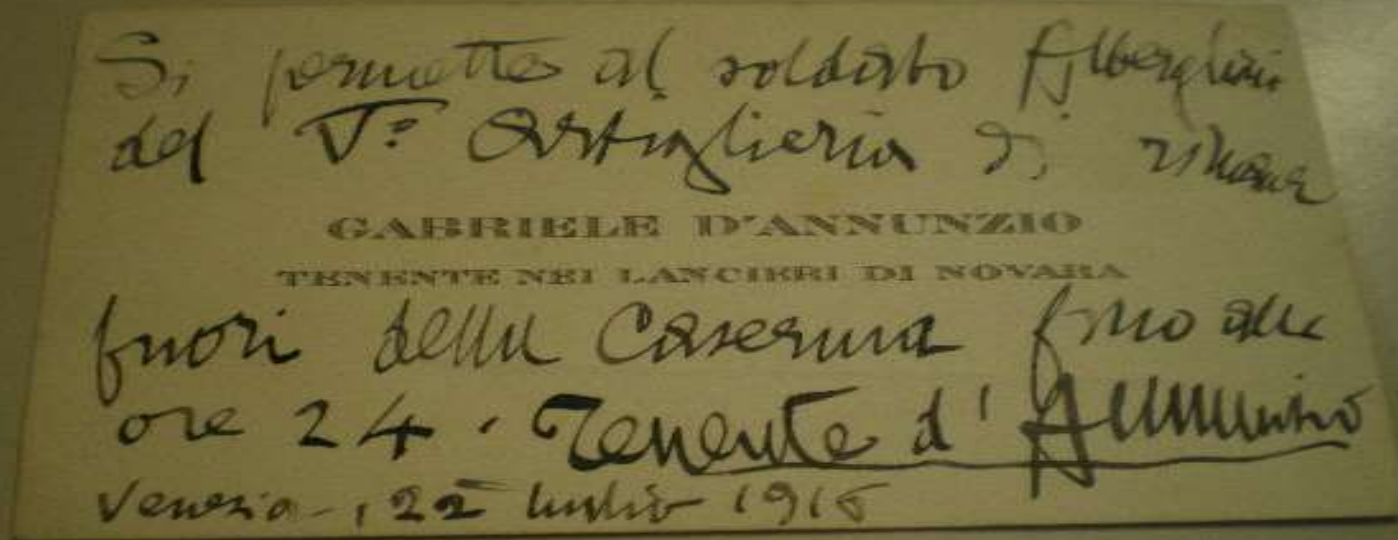 Si permette al soldato Alberghini
del V° Artiglieria di
GABRIELE D'ANNUNZIO
TENENTE NEI LANCIERI DI NOVARA
fuori della Caserma fino alle
ore 24. Tenente d'Annunzio
Venezia, 22 luglio 1915